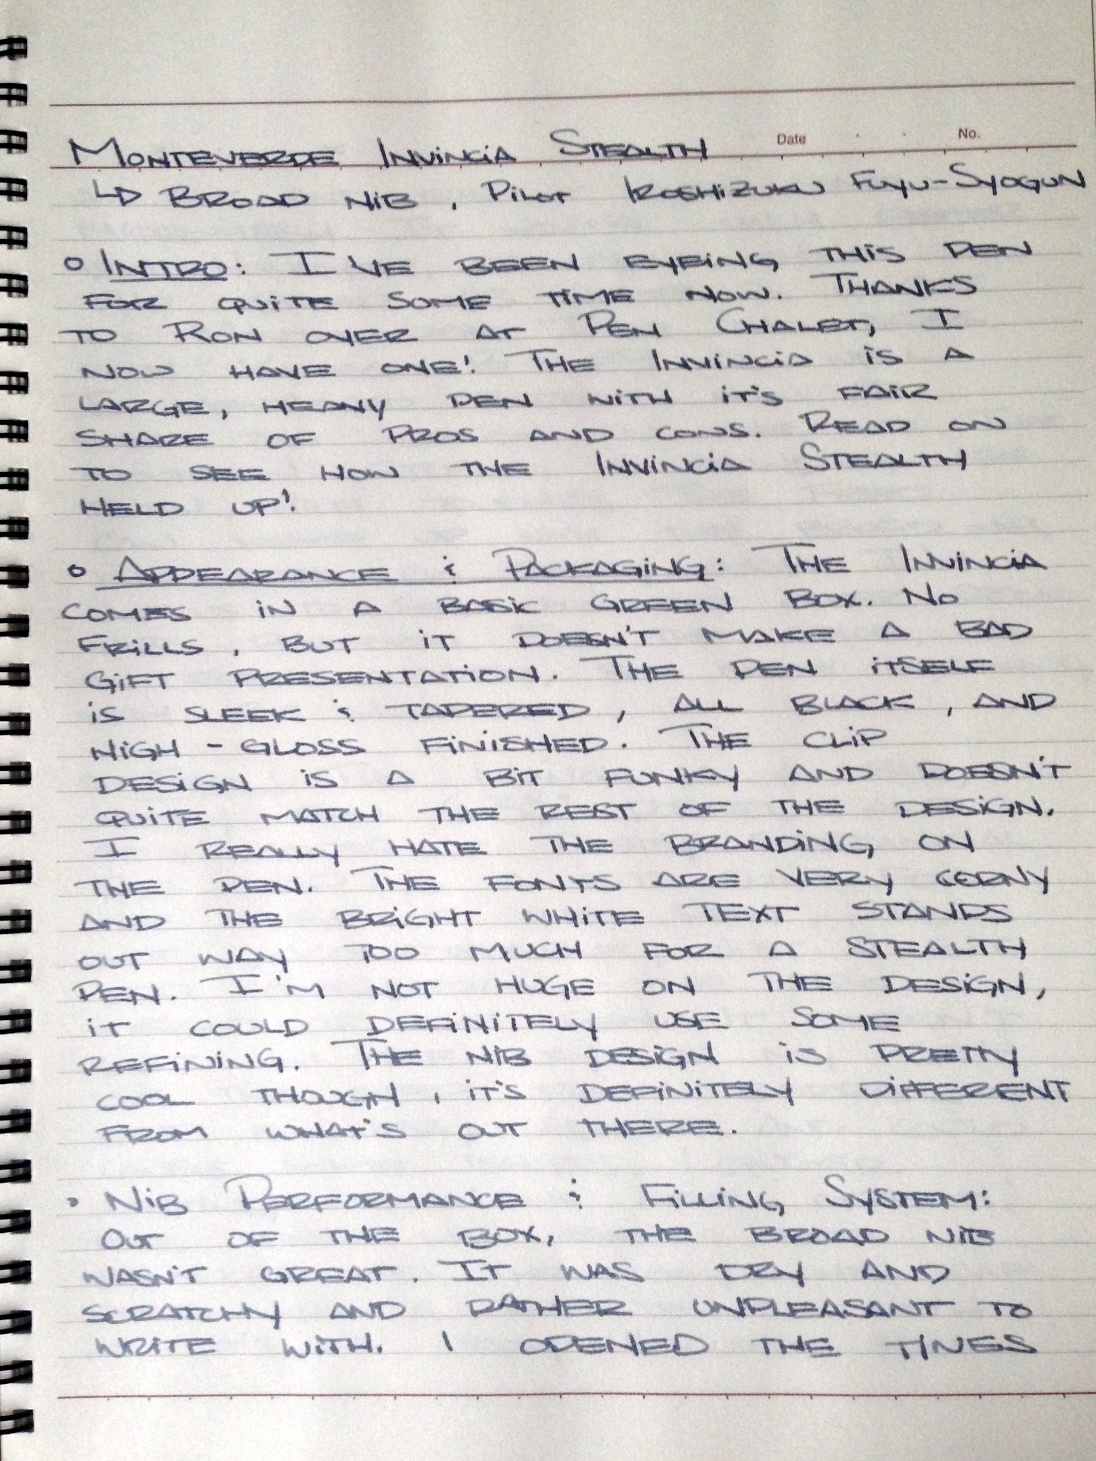 Date . . No.
MONTEVERDE INVINCIA STEALTH
↳ BROAD NIB, PILOT IROSHIZUKU FUYU-SYOGUN
○ INTRO: I'VE BEEN EYEING THIS PEN
FOR QUITE SOME TIME NOW. THANKS
TO RON OVER AT PEN CHALET, I
NOW HAVE ONE! THE INVINCIA IS A
LARGE, HEAVY PEN WITH IT'S FAIR
SHARE OF PROS AND CONS. READ ON
TO SEE HOW THE INVINCIA STEALTH
HELD UP!
○ APPEARANCE & PACKAGING: THE INVINCIA
COMES IN A BASIC GREEN BOX. NO
FRILLS, BUT IT DOESN'T MAKE A BAD
GIFT PRESENTATION. THE PEN ITSELF
IS SLEEK & TAPERED, ALL BLACK, AND
HIGH-GLOSS FINISHED. THE CLIP
DESIGN IS A BIT FUNKY AND DOESN'T
QUITE MATCH THE REST OF THE DESIGN.
I REALLY HATE THE BRANDING ON
THE PEN. THE FONTS ARE VERY CORNY
AND THE BRIGHT WHITE TEXT STANDS
OUT WAY TOO MUCH FOR A STEALTH
PEN. I'M NOT HUGE ON THE DESIGN,
IT COULD DEFINITELY USE SOME
REFINING. THE NIB DESIGN IS PRETTY
COOL THOUGH, IT'S DEFINITELY DIFFERENT
FROM WHAT'S OUT THERE.
○ NIB PERFORMANCE & FILLING SYSTEM:
OUT OF THE BOX, THE BROAD NIB
WASN'T GREAT. IT WAS DRY AND
SCRATCHY AND RATHER UNPLEASANT TO
WRITE WITH. I OPENED THE TINES